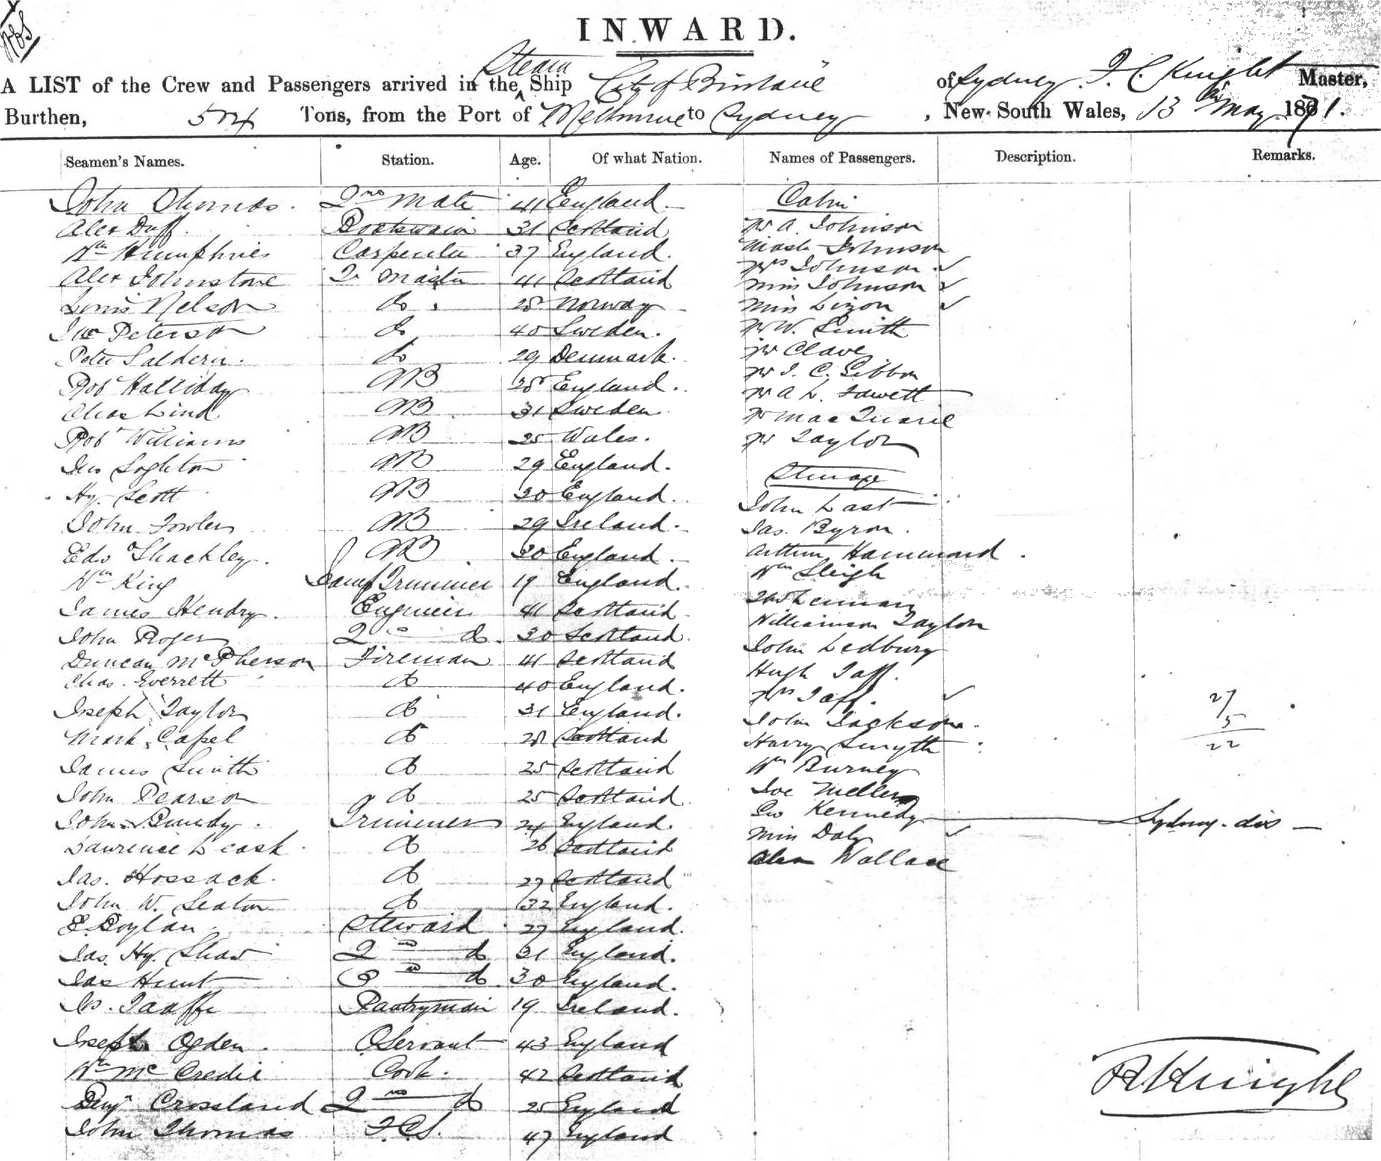 INWARD.
A LIST of the Crew and Passengers arrived in the Steam Ship City of Brisbane of Sydney, Knight Master,
Burthen, 504 Tons, from the Port of Melbourne to Sydney, New South Wales, 13th May 1871.
Seamen's Names. Station. Age. Of what Nation. Names of Passengers. Description. Remarks.
John Thomas. 2nd Mate 41 England. Cabin
Alex Duff. Boatswain 31 Scotland Mr A. Johnson
Wm Humphries Carpenter 37 England. Mast Johnson
Alex Johnstone Q. Master 41 Scotland Mrs Johnson ✓
Louis Nelson do. 28 Norway Miss Johnson ✓
Peterson do 40 Sweden. Miss Dixon ✓
Peter Saldern. do 29 Denmark. Mr W. Smith
Robt Halliday AB 28 England. Mr Clave
Chas Lind AB 31 Sweden. Mr J. C. Gibbon
Robt Williams AB 25 Wales. Mr A. L. Fawcett
AB 29 England. Mr MacQuarie
Hy. Scott AB 30 England. Mr Taylor
John Fowler AB 29 Ireland. Steerage
Edw Shackley. AB 30 England. John Last
Wm King Lamp Trimmer 19 England. Jas. Byron.
James Hendry. Engineer 41 Scotland Arthur Hammond.
John Roger 2nd do. 30 Scotland. Wm Sleigh
Duncan McPherson Fireman 41 Scotland
Chas. Everrett do 40 England. Williamson Taylor
Joseph Taylor do 31 England. John Ledbury
Mark Capel do 28 Scotland Hugh Taff.
James Smith do 25 Scotland Mrs Taff. ✓
John Pearson do 25 Scotland John Jackson.
John Bundy. Trimmer 24 England. Harry Smyth
Lawrence Leask do 26 Scotland Wm Burney
Jas. Hossack. do 27 Scotland Joe Mellers
John W. Seaton do 32 England. Geo Kennedy Sydney. dis
E. Boylan Steward 27 England. Miss Daly ✓
Jas. Hy. Shaw 2nd do 31 England. Alex Wallace
Jas Hunt do. 30 England.
Taaffe Pantryman 19 Ireland.
Joseph Ogden. Servant 43 England
Wm McCredie Cook. 42 Scotland
Benjn Crossland 2nd do 25 England
John Thomas 47 England
27
5
22
Knight